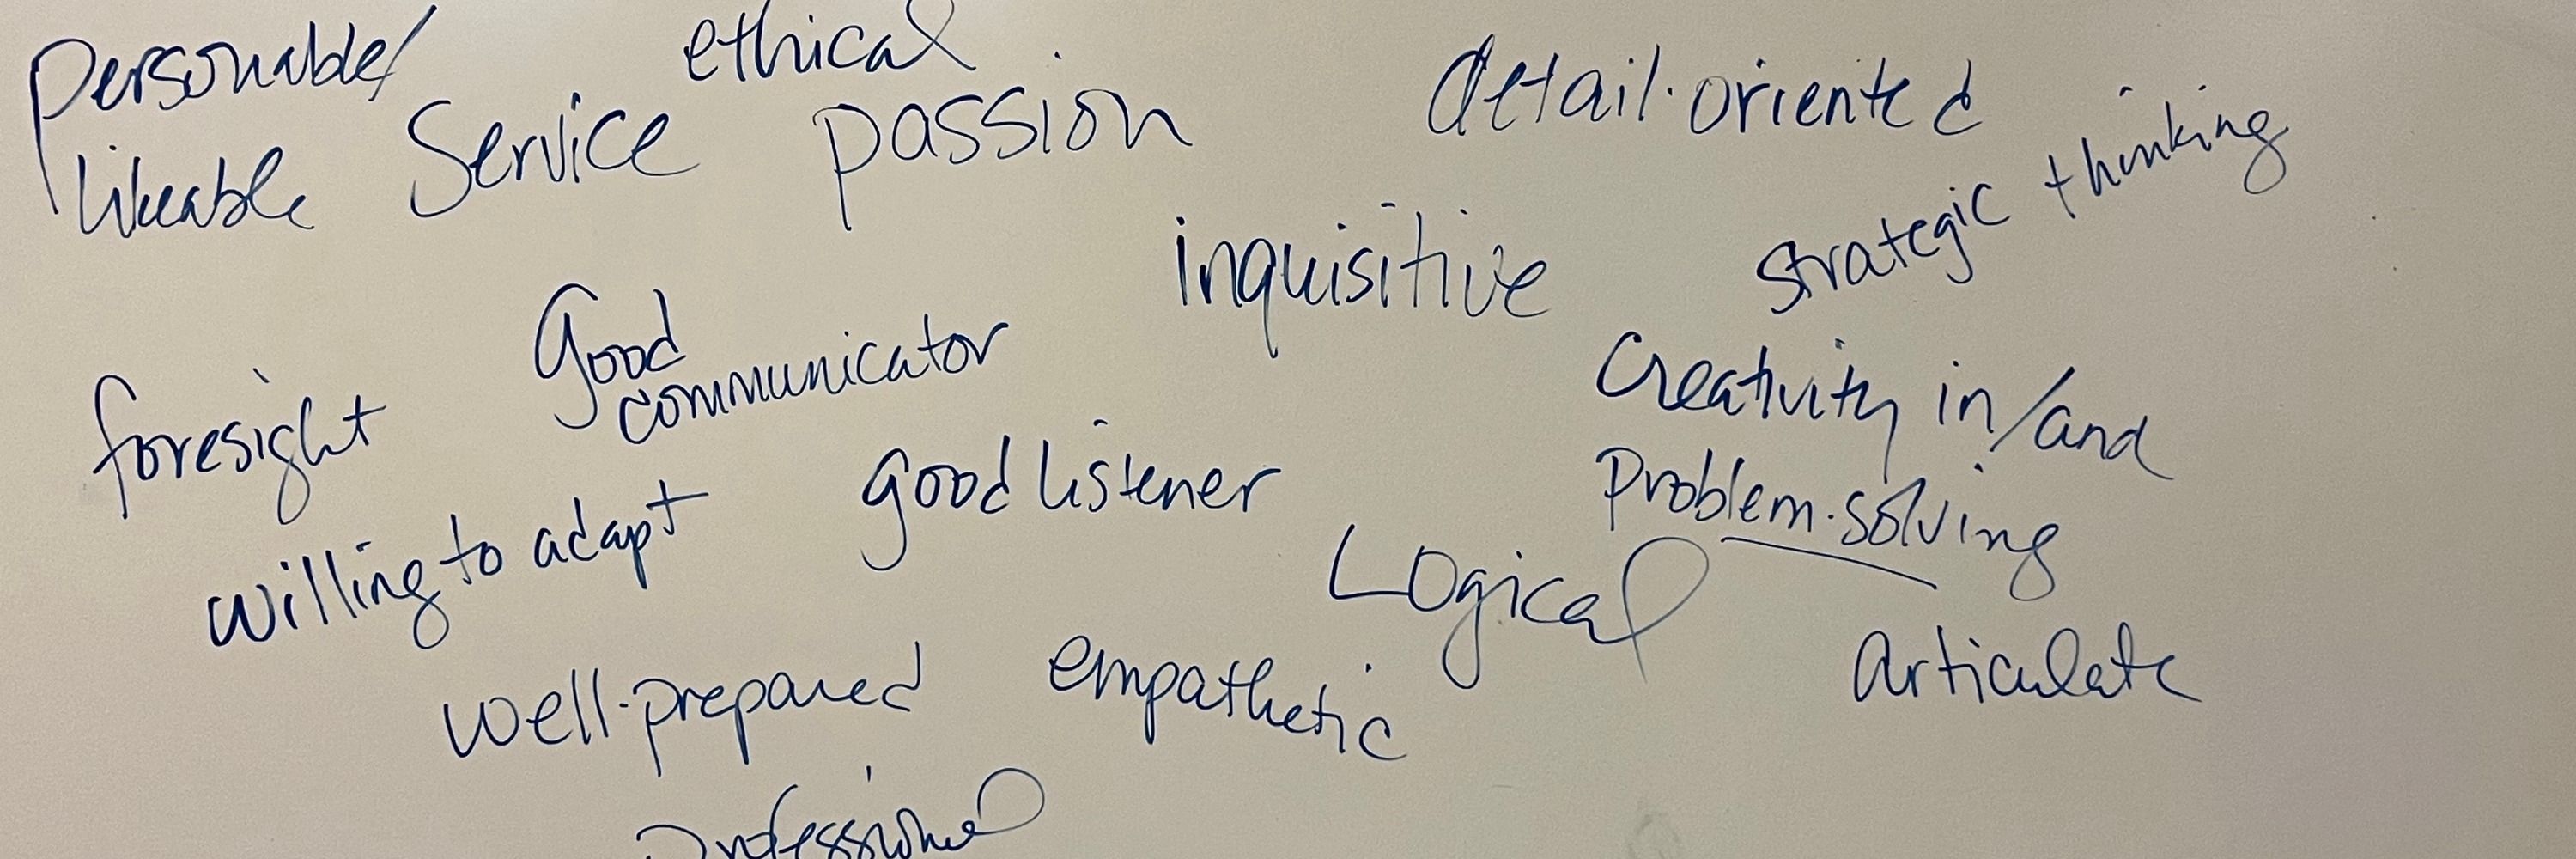 personable/
likeable
Service
ethical
passion
detail-oriented
strategic thinking
inquisitive
Good
communicator
foresight
Creativity in/and
problem-solving
good listener
willing to adapt
Logical
articulate
well-prepared
empathetic
professional